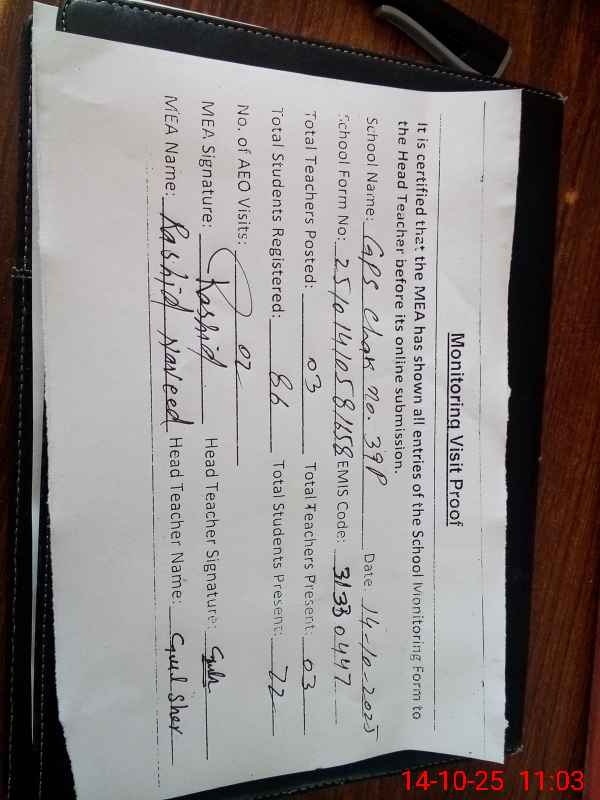 Monitoring Visit Proof
It is certified that the MEA has shown all entries of the School Monitoring Form to
the Head Teacher before its online submission.
School Name: GPS Chak no. 39P Date 14-10-2025
School Form No: 251014105 81658 EMIS Code: 31330447
Total Teachers Posted: 03 Total Teachers Present: 03
Total Students Registered: 86 Total Students Present: 72
No. of AEO Visits: 02
MEA Signature: Rashid Head Teacher Signature: Gul
MEA Name: Rashid Naveed Head Teacher Name: Gul Sher
14-10-25 11:03